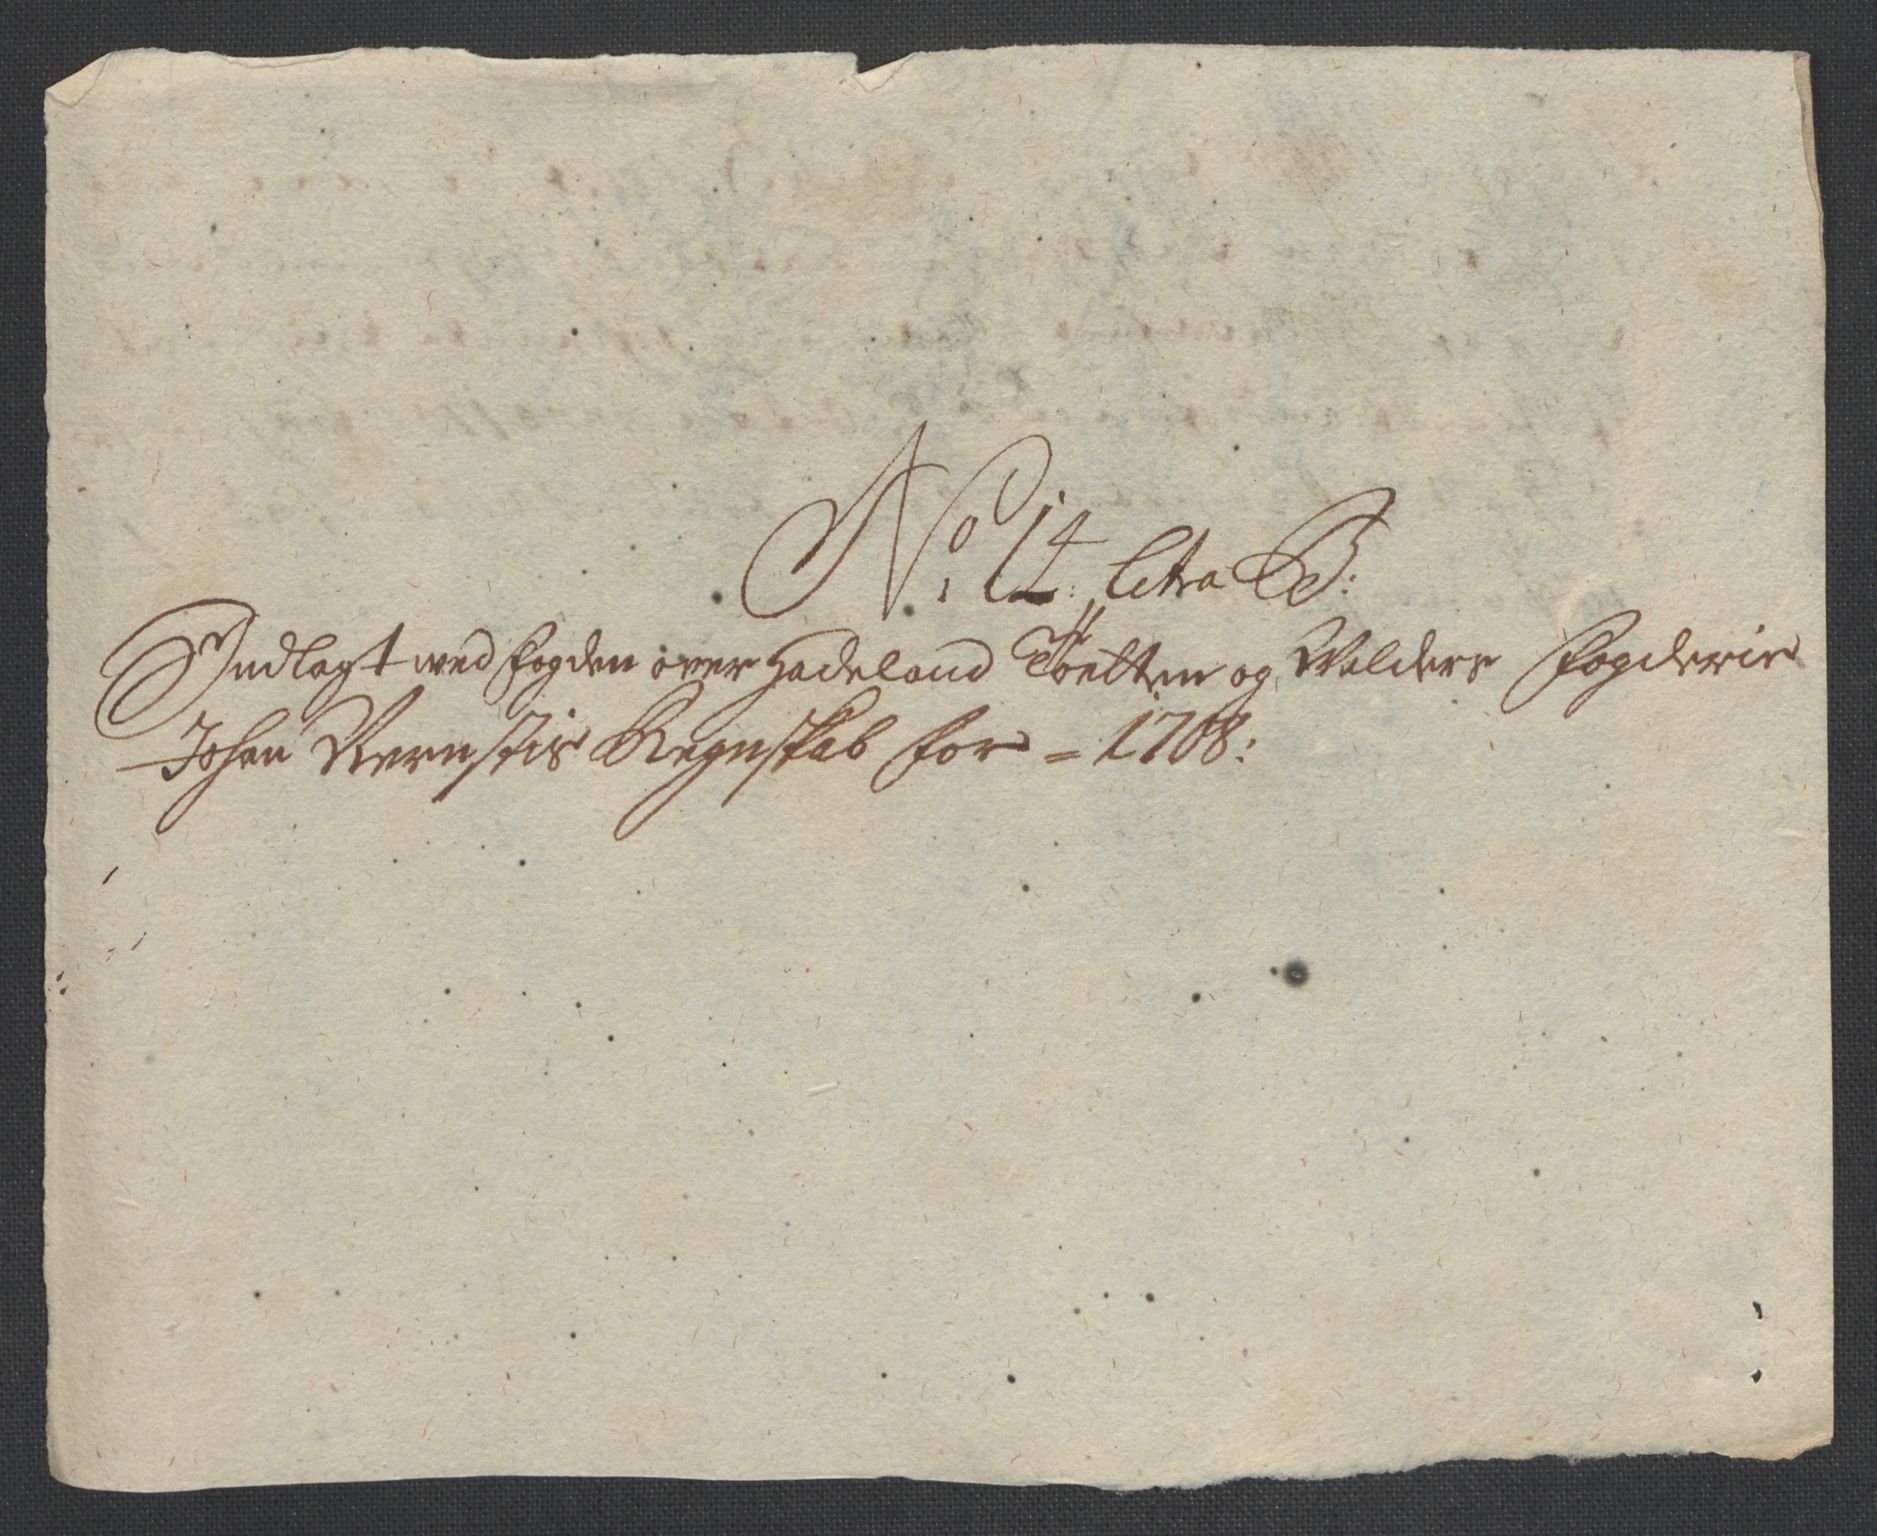 No: 14 litra B:
Indlagt wed fogden over Hadeland Toelten og Walders fogderie
Johan Rernstis Regnskab for = 1708: